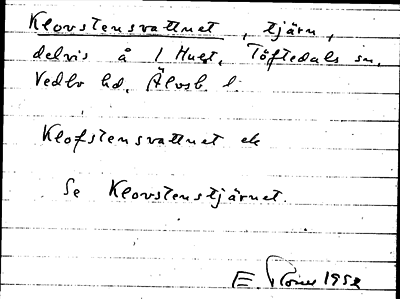 Klovstensvattnet, tjärn,
delvis å 1 Hult, Töftedals sn.
Vedbo hd, Älvsb. l.
Klofstensvattnet ek
Se Klovstenstjärnet.
E. 1952